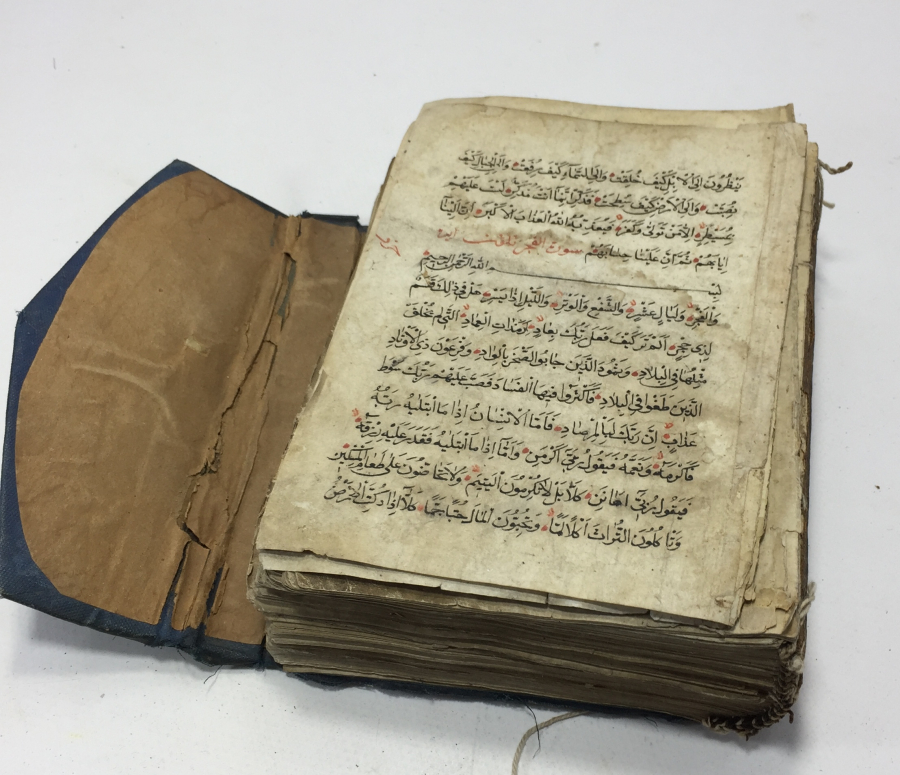 يَنْظُرُونَ اِلَى الْاِبِلِ كَيْفَ خُلِقَتْ وَاِلَى السَّمَآءِ كَيْفَ رُفِعَتْ وَاِلَى الْجِبَالِ كَيْفَ
نُصِبَتْ وَاِلَى الْاَرْضِ كَيْفَ سُطِحَتْ فَذَكِّرْ اِنَّمَا اَنْتَ مُذَكِّرٌ لَسْتَ عَلَيْهِمْ
بِمُسَيْطِرٍ اِلَّا مَنْ تَوَلّٰى وَكَفَرَ فَيُعَذِّبُهُ اللّٰهُ الْعَذَابَ الْاَكْبَرَ اِنَّ اِلَيْنَا
اِيَابَهُمْ ثُمَّ اِنَّ عَلَيْنَا حِسَابَهُمْ سورت الفجر
بِسْمِ اللّٰهِ الرَّحْمٰنِ الرَّحِيْمِ
وَالْفَجْرِ وَلَيَالٍ عَشْرٍ وَالشَّفْعِ وَالْوَتْرِ وَاللَّيْلِ اِذَا يَسْرِ هَلْ فِي ذٰلِكَ قَسَمٌ
لِذِي حِجْرٍ اَلَمْ تَرَ كَيْفَ فَعَلَ رَبُّكَ بِعَادٍ اِرَمَ ذَاتِ الْعِمَادِ الَّتِي لَمْ يُخْلَقْ
مِثْلُهَا فِي الْبِلَادِ وَثَمُودَ الَّذِينَ جَابُوا الصَّخْرَ بِالْوَادِ وَفِرْعَوْنَ ذِي الْاَوْتَادِ
الَّذِينَ طَغَوْا فِي الْبِلَادِ فَاَكْثَرُوا فِيهَا الْفَسَادَ فَصَبَّ عَلَيْهِمْ رَبُّكَ سَوْطَ
عَذَابٍ اِنَّ رَبَّكَ لَبِالْمِرْصَادِ فَاَمَّا الْاِنْسَانُ اِذَا مَا ابْتَلٰيهُ رَبُّهُ
فَاَكْرَمَهُ وَنَعَّمَهُ فَيَقُولُ رَبِّي اَكْرَمَنِ وَاَمَّا اِذَا مَا ابْتَلٰيهُ فَقَدَرَ عَلَيْهِ رِزْقَهُ
فَيَقُولُ رَبِّي اَهَانَنِ كَلَّا بَلْ لَا تُكْرِمُونَ الْيَتِيمَ وَلَا تَحَاضُّونَ عَلٰى طَعَامِ الْمِسْكِينِ
وَتَاْكُلُونَ التُّرَاثَ اَكْلًا لَمًّا وَتُحِبُّونَ الْمَالَ حُبًّا جَمًّا كَلَّا اِذَا دُكَّتِ الْاَرْضُ